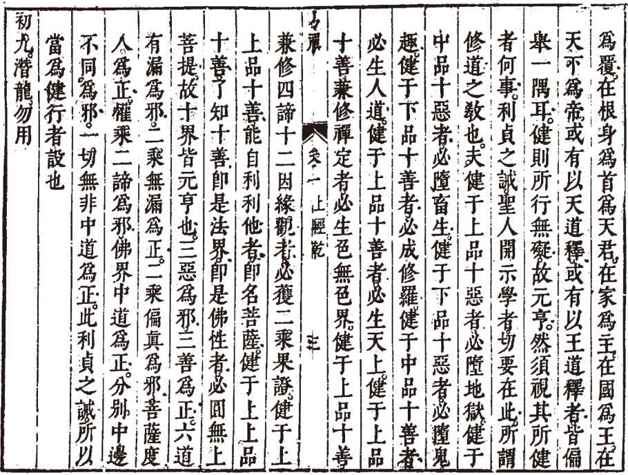 為覆在根身為首為天君在家為主在國為王在
天下為帝或有以天道釋或有以王道釋者皆偏
舉一隅耳健則所行無礙故元亨然須視其所健
者何事利貞之誡聖人開示學者切要在此所謂
修道之教也夫健于上品十惡者必墮地獄健于
中品十惡者必墮畜生健于下品十惡者必墮鬼
趣健于下品十善者必成修羅健于中品十善者
必生人道健于上品十善者必生天上健于上品
十善兼修禪定者必生色無色界健于上品十善
卷一 上經乾 三
兼修四諦十二因緣觀者必獲二乘果證健于上
上品十善能自利利他者即名菩薩健于上上品
十善了知十善即是法界即是佛性者必圓無上
菩提故十界皆元亨也三惡為邪三善為正六道
有漏為邪二乘無漏為正二乘偏真為邪菩薩度
人為正權乘二諦為邪佛界中道為正分別中邊
不同為邪一切無非中道為正此利貞之誡所以
當為健行者設也
初九潛龍勿用